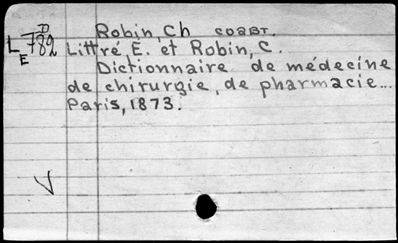 Robin, Ch соавт.
L D/E 782
Littré, E. et Robin, C.
Dictionnaire de médecine
de chirurgie, de pharmacie...
Paris, 1873.
V